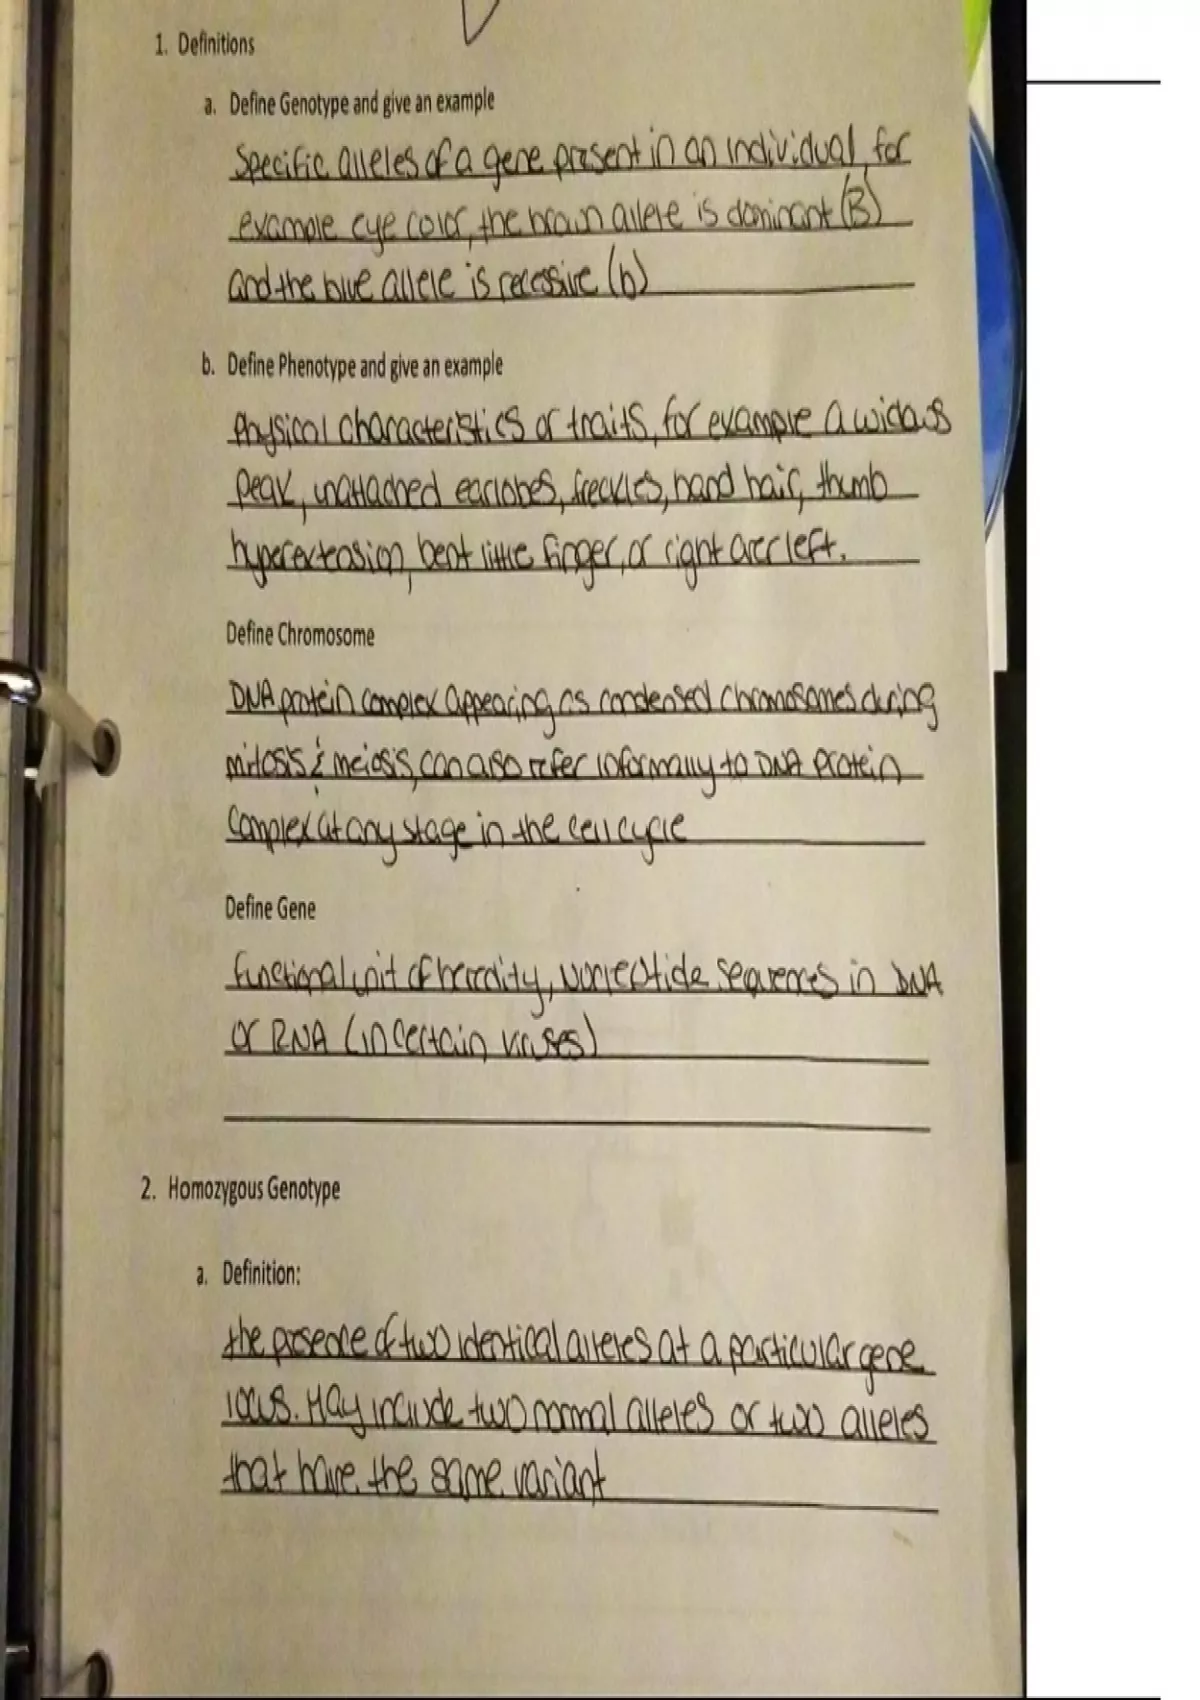 1. Definitions
a. Define Genotype and give an example
Specific alleles of a gene present in an individual, for
example eye color, the brown allele is dominant (B)
and the blue allele is recessive (b)
b. Define Phenotype and give an example
Physical characteristics or traits, for example a widows
peak, unattached earlobes, freckles, hand hair, thumb
hyperextension, bent little finger, or right over left.
Define Chromosome
DNA protein complex appearing as condensed chromosomes during
mitosis & meiosis, can also refer informally to DNA protein
complex at any stage in the cell cycle
Define Gene
functional unit of heredity, nucleotide sequences in DNA
or RNA (in certain viruses)
2. Homozygous Genotype
a. Definition:
the presence of two identical alleles at a particular gene
locus. May include two normal alleles or two alleles
that have the same variant